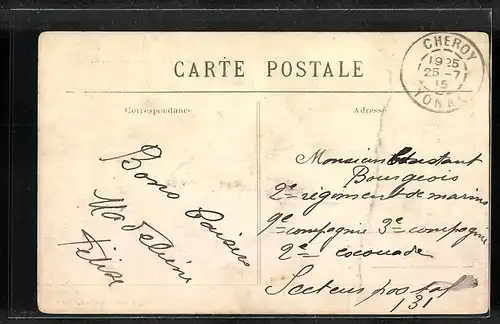 CARTE POSTALE
CHEROY
1925
25-7
15
YONNE
Correspondance
Adresse
Bons Baisers
Madeleine
Félix
Monsieur Constant
Bourgeois
2e régiment de marine
9e compagnie 3e compagnie
2e escouade
Secteur postal
131